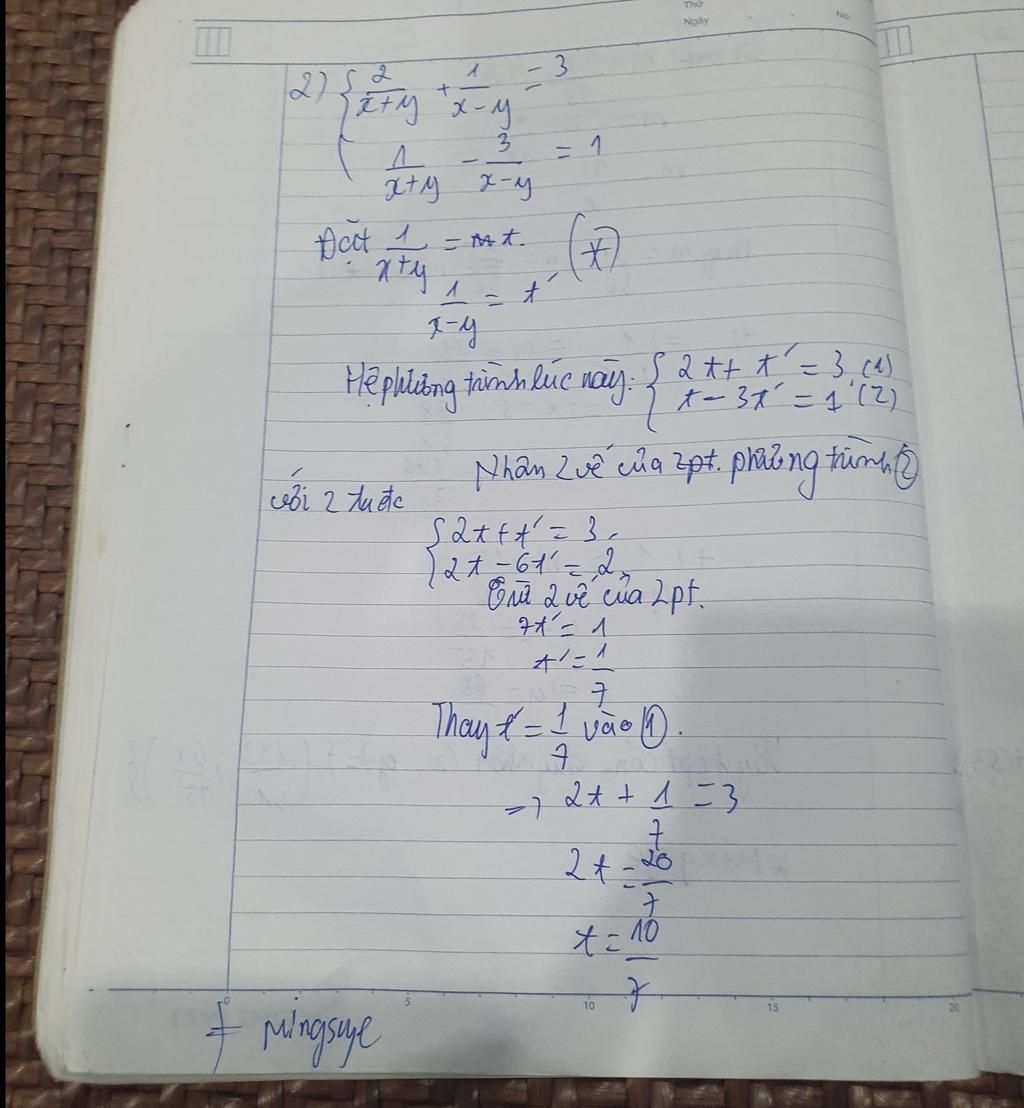 Thứ
Ngày
No.
2) { 2/(x+y) + 1/(x-y) = 3
1/(x+y) - 3/(x-y) = 1
Đặt 1/(x+y) = t. (*)
1/(x-y) = t'
Hệ phương trình lúc này: { 2t + t' = 3 (1)
t - 3t' = 1 (2)
Nhân 2 vế của 2pt. phương trình (2)
với 2 ta đc
{ 2t + t' = 3
2t - 6t' = 2
Trừ 2 vế của 2pt.
7t' = 1
t' = 1/7
Thay t' = 1/7 vào (1).
=> 2t + 1/7 = 3
2t = 20/7
t = 10/7
0 5 10 15 20